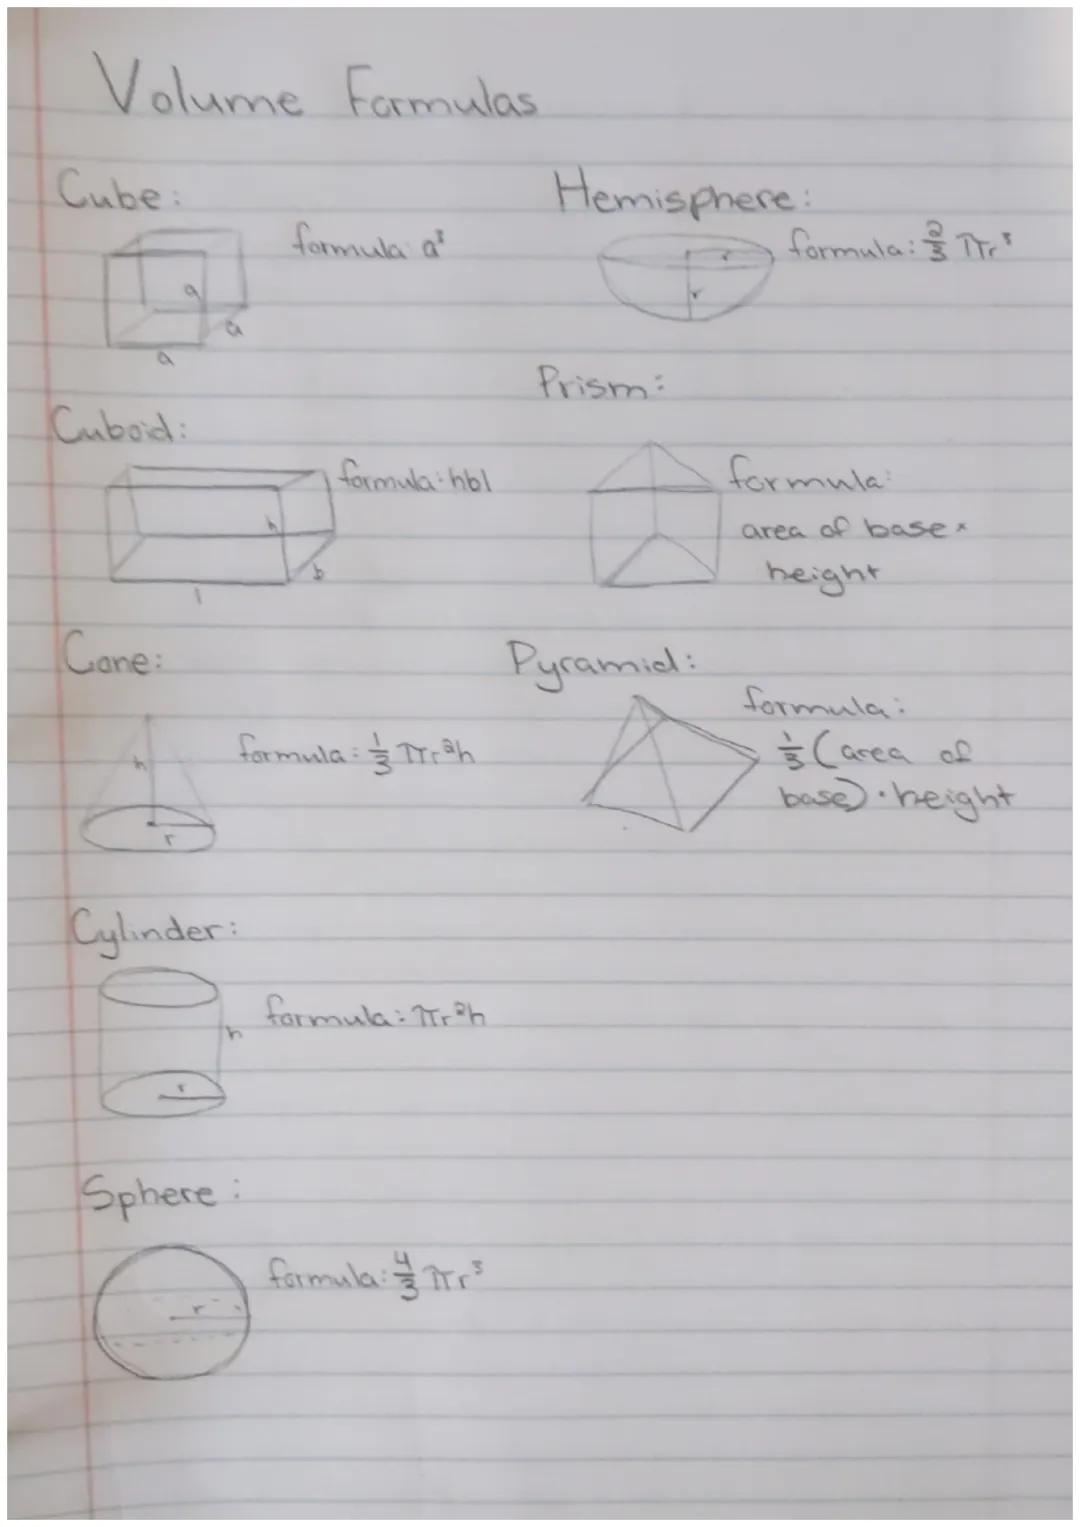 Volume Formulas
Cube:
formula: a³
a
a
a
Cuboid:
formula: hbl
h
b
l
Cone:
formula: 1/3 πr²h
h
r
Cylinder:
formula: πr²h
h
r
Sphere:
formula: 4/3 πr³
r
Hemisphere:
formula: 2/3 πr³
r
r
Prism:
formula:
area of base ×
height
Pyramid:
formula:
1/3 (area of
base) · height